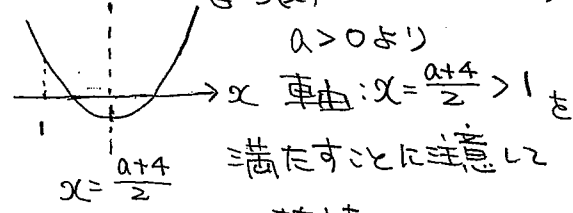 a>0より
x 軸:x=\frac{a+4}{2}>1を
1
満たすことに注意して
x=\frac{a+4}{2}